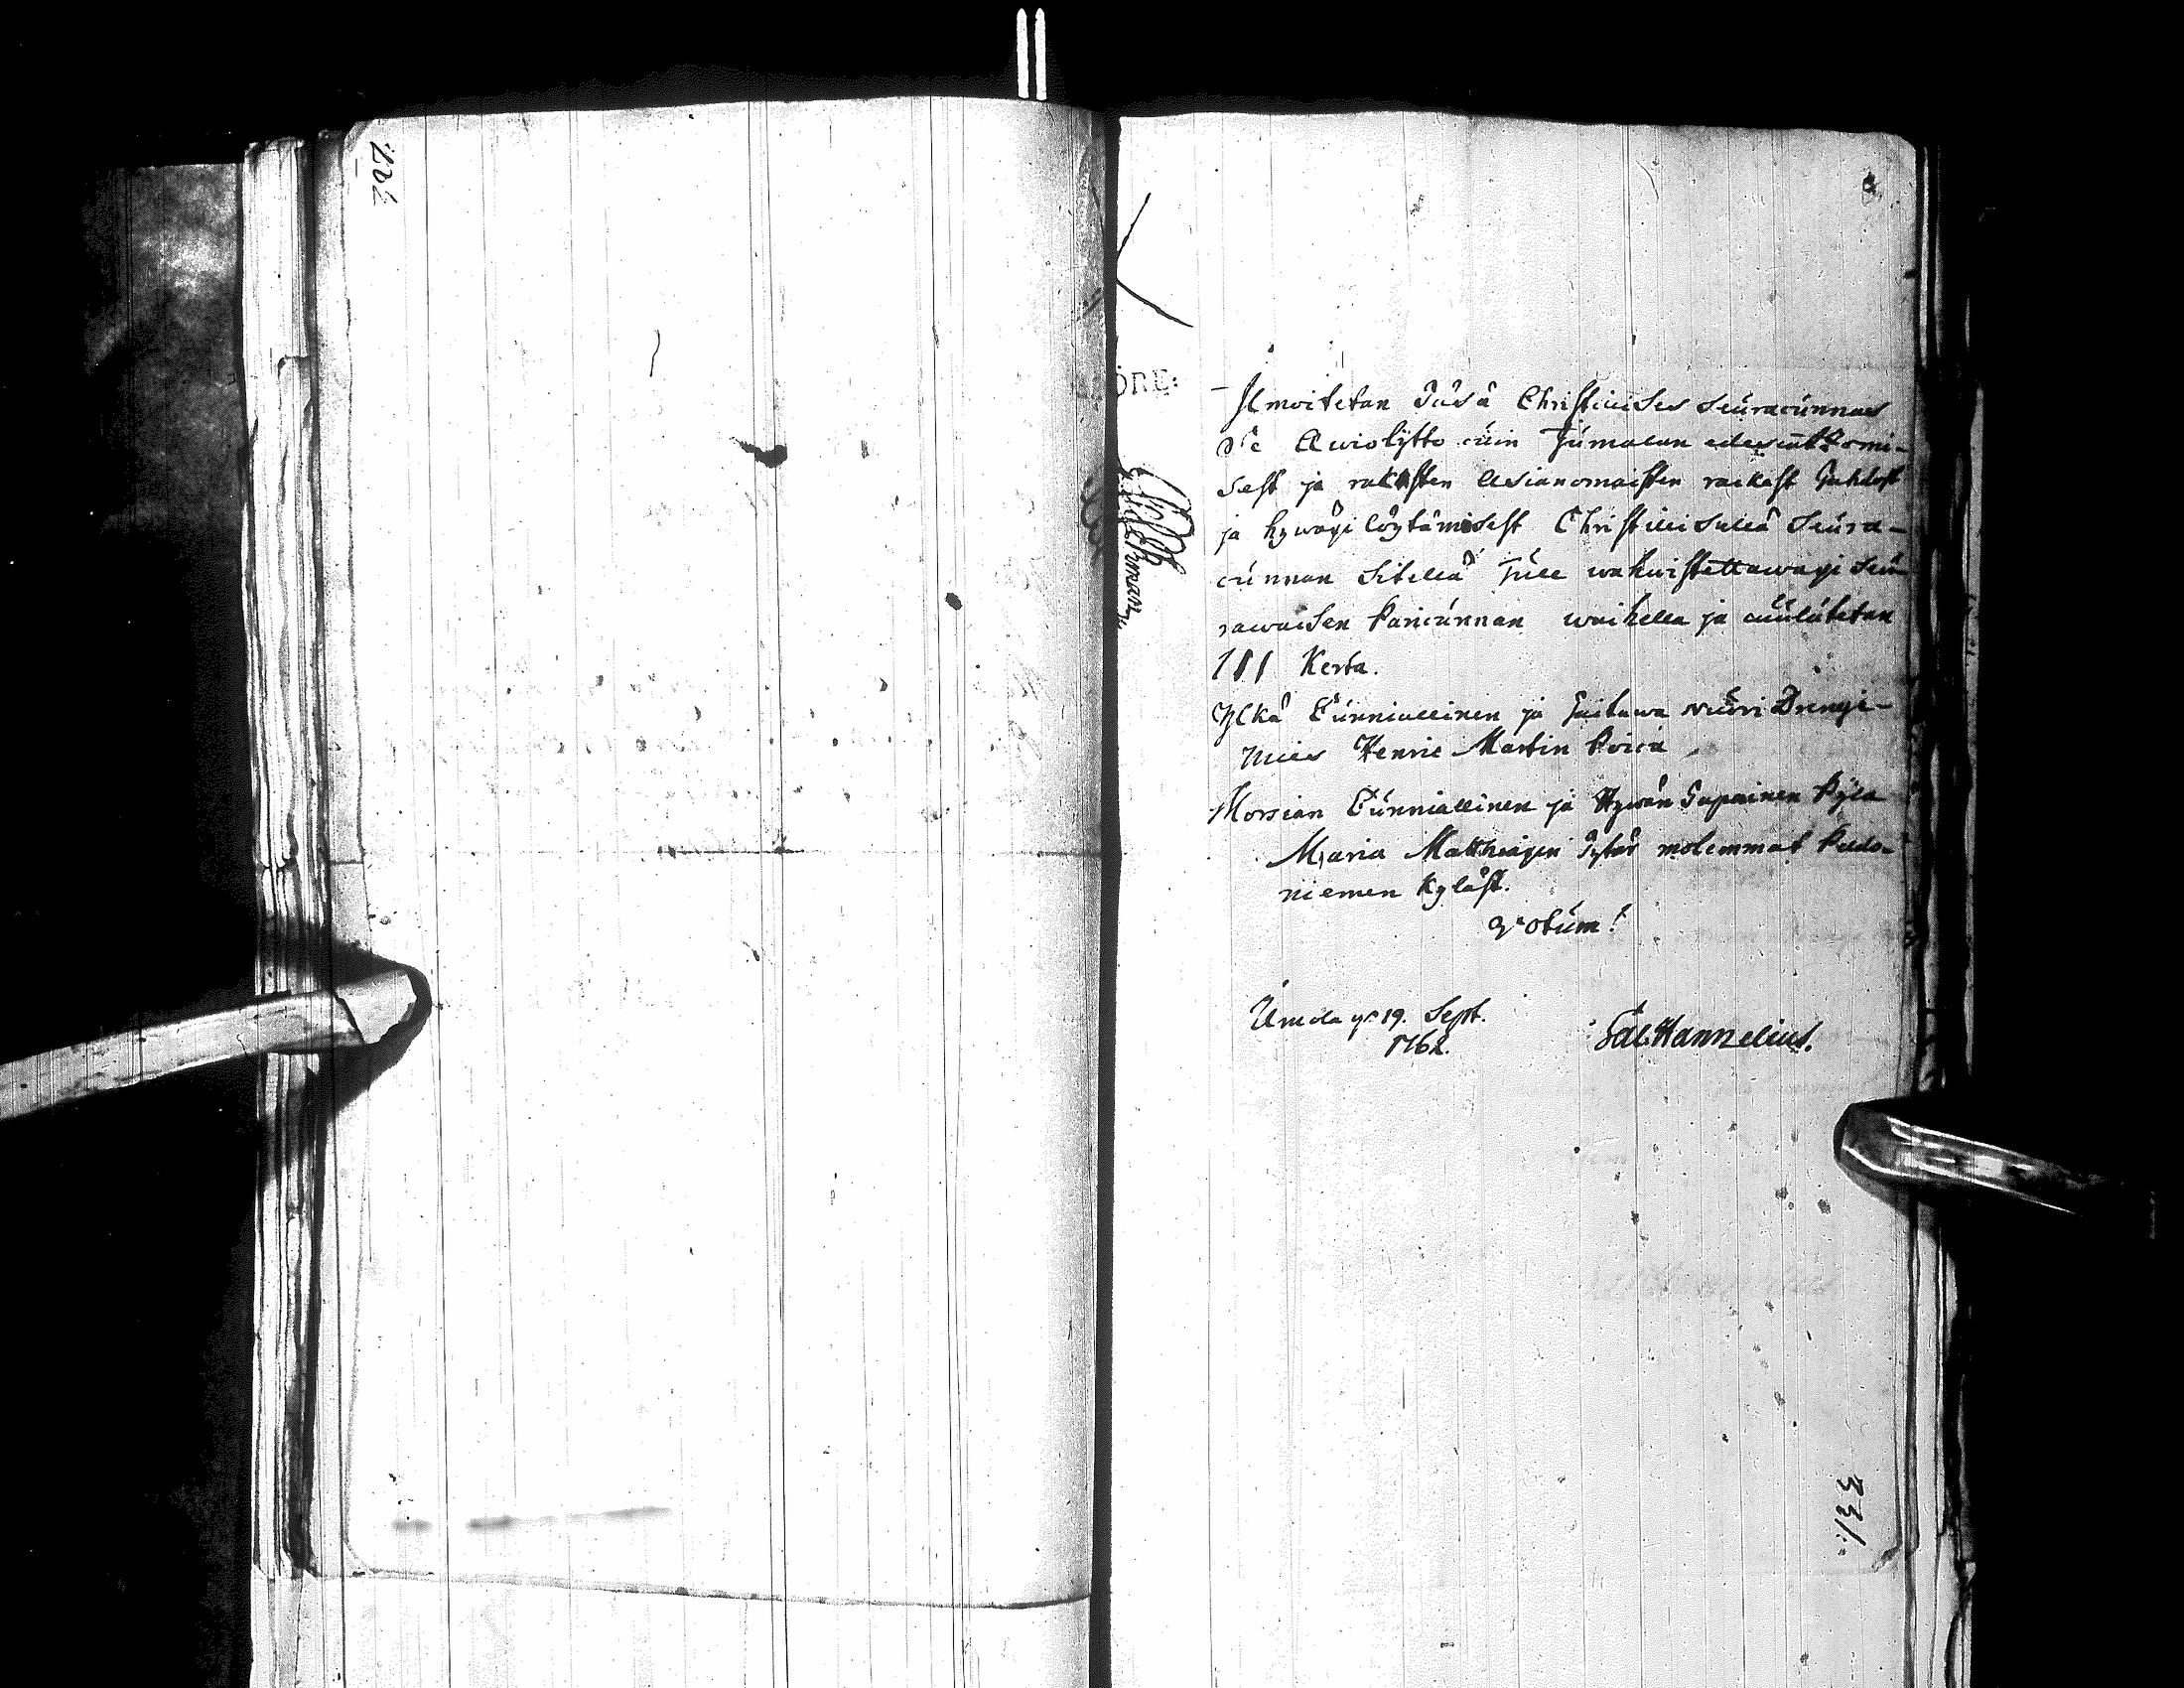 202
ÖRE:
Ilmoitetan Täsä Christilises Seuracunnas
se Awiolijtto cuin Jumalan edescatzomi-
sest ja rakasten Asianomaisten raikast Tahdost
ja hywäxi löytämisest Christilisellä Seura-
cunnan Sitellä Tule wahwistettawaxi seu-
rawaisen Paricunnan waihella ja cuulutetan
111 Kerta.
Ylkä Cunniallinen ja Taitawa Nuori Drengi-
mies Henric Martin Poica
Morsian Cunniallinen ja Hywän Tapainen Pijca
Maria Matthiaxen Tytär molemmat Pudo-
niemen Kyläst.
Votum!
Umola 19. Sept.
1762.
Sal. Hannelius.
331.